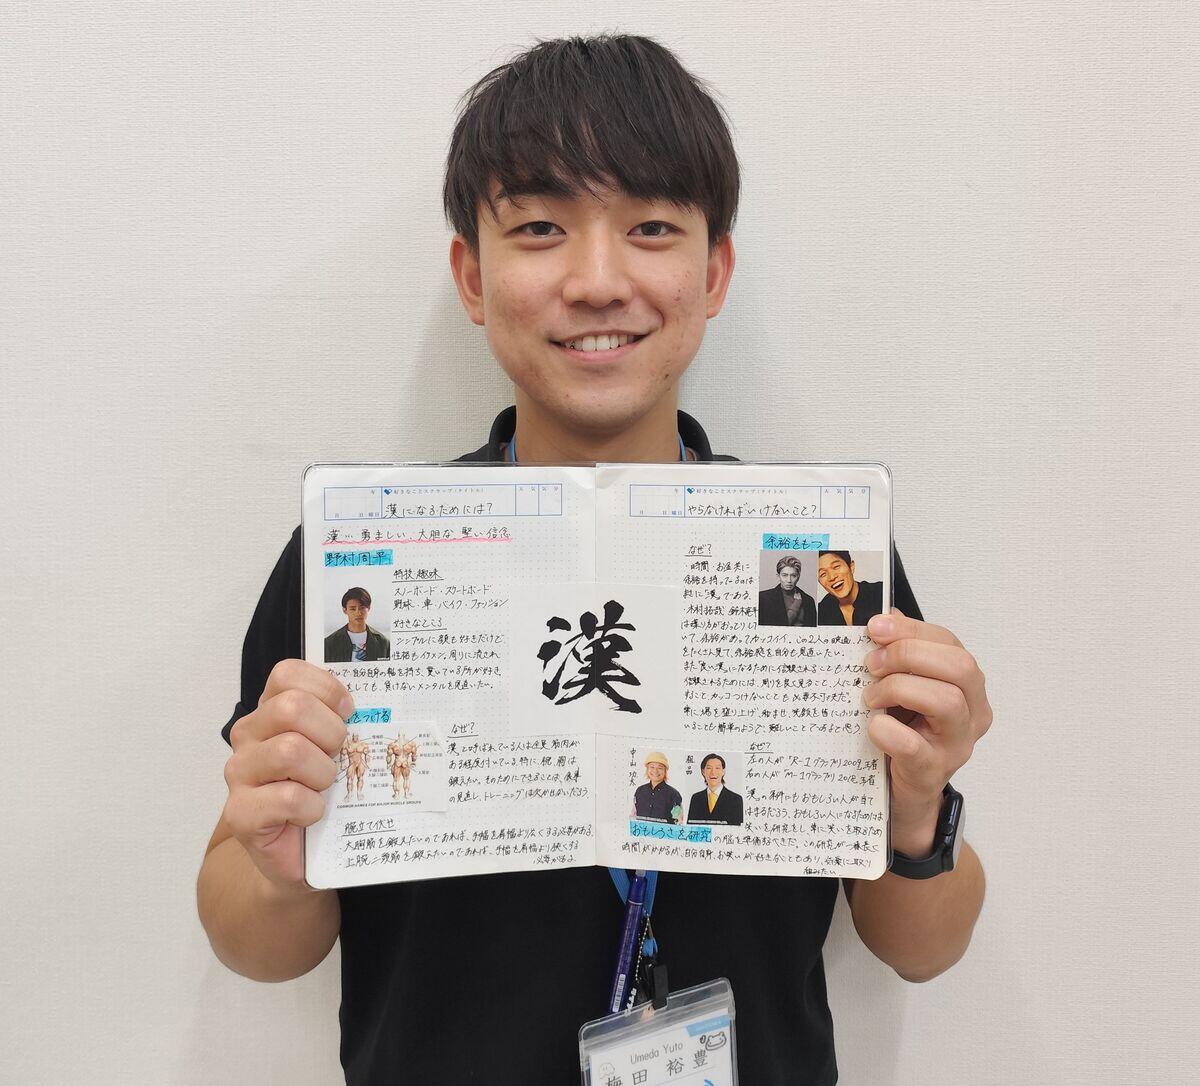 年
好きなことスクラップ(タイトル)
天気 気分
月 日 曜日
漢になるためには?
漢…勇ましい、大胆な、堅い信念
野村周平
特技、趣味
スノーボード・スケートボード
野球・車・バイク・ファッション
好きなところ
シンプルに顔も好きだけど、
性格もイケメン。周りに流され
ないで自分自身の軸を持ち、貫いている所が好き。
をしても、負けないメンタルを見直いたい。
をつける
COMMON NAMES FOR MAJOR MUSCLE GROUPS
なぜ?
漢と呼ばれている人は全員、筋肉が
ある程度付いている。特に、腕、胸は
鍛えたい。そのためにできることは、食事
の見直し、トレーニングは欠かせないだろう
腕立て伏せ
大胸筋を鍛えたいのであれば、手幅を肩幅より広くする必要がある。
上腕二頭筋を鍛えたいのであれば、手幅を肩幅より狭くする
必要がある。
漢
年
好きなことスクラップ(タイトル)
天気 気分
月 日 曜日
やらなければいけないこと?
余裕をもつ
なぜ?
・時間・お金共に
余裕を持っているのは
正に「漢」である。
木村拓哉 鈴木亮平
は喋り方がおっとりして
いて、余裕があってカッコイイ。この2人の映画、ドラ
をたくさん見て、余裕感を自分も見直いたい。
また"良い漢"になるために信頼されることも大切
信頼されるためには、周りを良く見ること、人に優しく
すること、カッコつけないことも必要不可欠だ。
常に場を盛り上げ、和ませ、笑顔を皆にふりまいて
いることも簡単のようで、難しいことであると思う
中山功太
粗品
なぜ?
左の人が"R-1グランプリ2009"王者
右の人が"M-1グランプリ2018"王者
「漢」の条件にもおもしろい人が当て
はまるだろう。おもしろい人になるためには
笑いを研究をし、常に笑いを取るため
おもしろさを研究
の脳を準備するべきだ。この研究が一番長く
時間がかかるが、自分自身、お笑いが好きなこともあり、念入りに取り
組みたい。
Umeda Yuto
梅田 裕豊